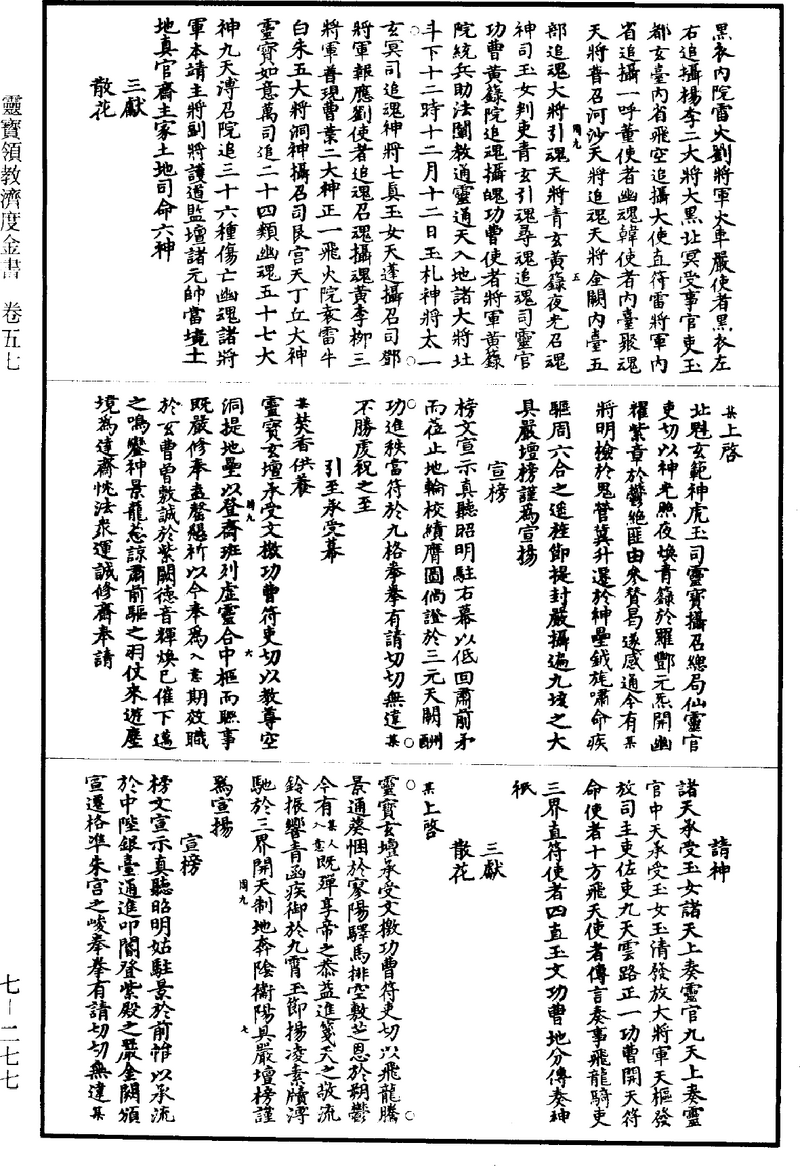 黑衣內院雷火劉將軍火車嚴使者黑衣左
右追攝楊李二大將大黑北冥受事官吏玉
都玄臺內省飛空追攝大使直符雷將軍內
省追攝一呼董使者幽魂韓使者內臺聚魂
天將普召河沙天將追魂天將金闕內臺五
周九
五
部追魂大將引魂天將青玄黃籙夜光召魂
神司玉女判吏青玄引魂尋魂追魂司靈官
功曹黃籙院追魂攝魄功曹使者將軍黃籙
院統兵助法闡教通靈通天入地諸大將北
斗下十二時十二月十二日玉札神將太一
玄冥司追魂神將七真玉女天蓬攝召司鄧
將軍報應劉使者追魂召魂攝魂黃李柳三
將軍普現曹葉二大神正一飛火院袁雷牛
白朱五大將洞神攝召司艮宮天丁丘大神
靈寶如意萬司追二十四類幽魂五十七大
神九天溥召院追三十六種傷亡幽魂諸將
軍本靖主將副將護道監壇諸元帥當境土
地真官齋主家土地司命六神
三獻
散花
某上啓
北魁玄範神虎玉司靈寶攝召總局仙靈官
吏切以神光照夜煥青籙於羅酆元炁開幽
耀紫章於鬱絕匪由參贊曷遂感通今有某
將明檢於鬼營冀升遷於神壘鉞旄嘯命疾
驅周六合之遥旌節提封嚴攝遍九垓之大
具嚴壇榜謹爲宣揚
宣榜
榜文宣示真聽昭明駐右幕以低回肅前矛
而蒞止地輪校績膺圖倘證於三元天闕酬
功進秩當符於九格拳拳有請切切無違某
不勝虔祝之至
引至承受幕
某焚香供養
靈寶玄壇承受文檄功曹符吏切以教尊空
周九
六
洞提地壘以登齋班列虛靈合中樞而聯事
既嚴修奉盍罄懇祈以今奉爲入意期效職
於玄曹曾敷誠於紫闕德音輝煥已催下邁
之鳴鑾神景龍蔥諒肅前驅之羽仗來遊塵
境爲達齋忱法衆運誠修齋奉請
請神
諸天承受玉女諸天上奏靈官九天上奏靈
官中天承受玉女玉清發放大將軍天樞發
放司主吏佐吏九天雲路正一功曹開天符
命使者十方飛天使者傳言奏事飛龍騎吏
三界直符使者四直玉文功曹地分傳奏神
祇
三獻
散花
某上啓
靈寶玄壇承受文檄功曹符吏切以飛龍騰
景通葵悃於寥陽驛馬排空敷芝恩於朔鬱
今有某人入意既殫享帝之恭益進箋天之敬流
鈴振響青函疾御於九霄玉節揚凌素牘渟
馳於三界開天制地奔陰衝陽具嚴壇榜謹
周九
七
爲宣揚
宣榜
榜文宣示真聽昭明姑駐景於前帷以承流
於中陛銀臺通進叩閽登紫殿之嚴金闕頒
宣遷格準朱宮之峻拳拳有請切切無違某
靈寶領教濟度金書 卷五七
七—二七七